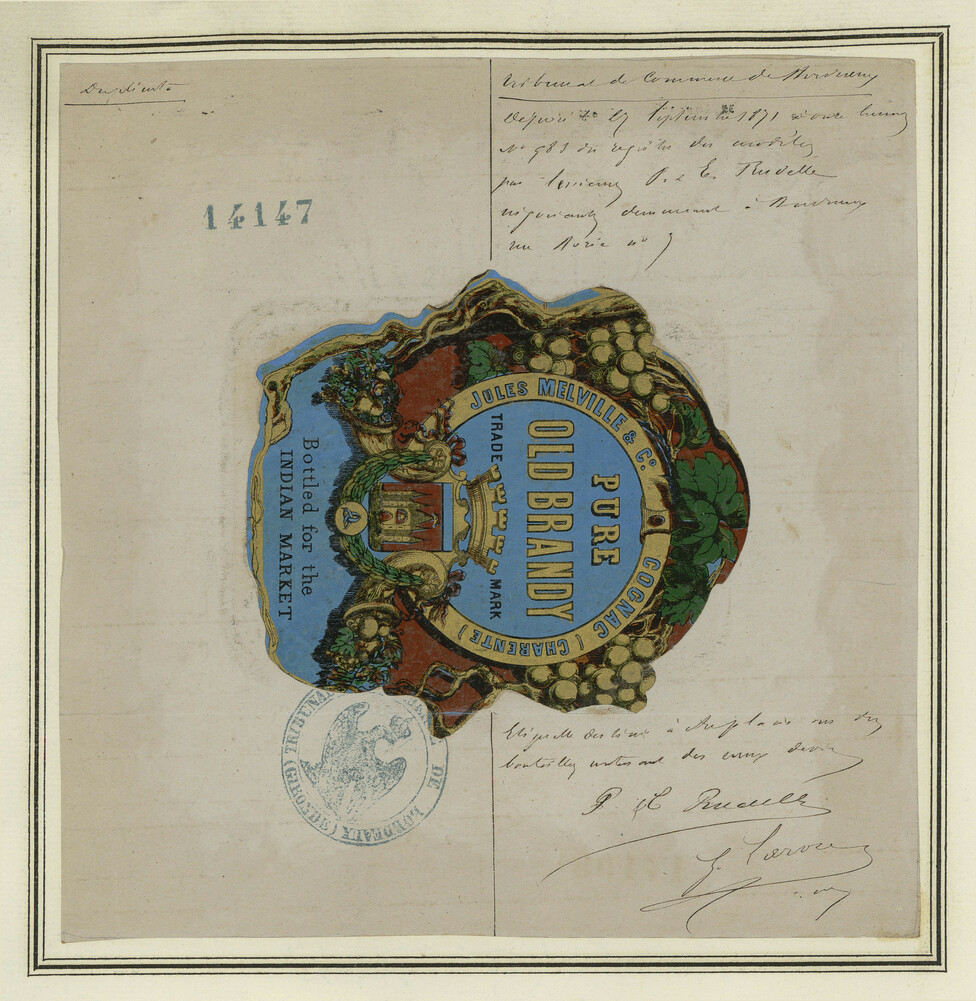 Duplicata
Tribunal de Commerce de Bordeaux
Déposé le 27 Septembre 1871 à onze heures
Nº 983 du registre des modèles
par Messieurs P. & E. Rudelle
négociants demeurant à Bordeaux
rue Borie nº
14147
JULES MELVILLE & Cº
COGNAC (CHARENTE)
PURE
OLD BRANDY
TRADE MARK
Bottled for the
INDIAN MARKET
TRIBUNAL DE BORDEAUX (GIRONDE)
Etiquette destinée à être placée sur des
bouteilles contenant des
P. & E. Rudelle